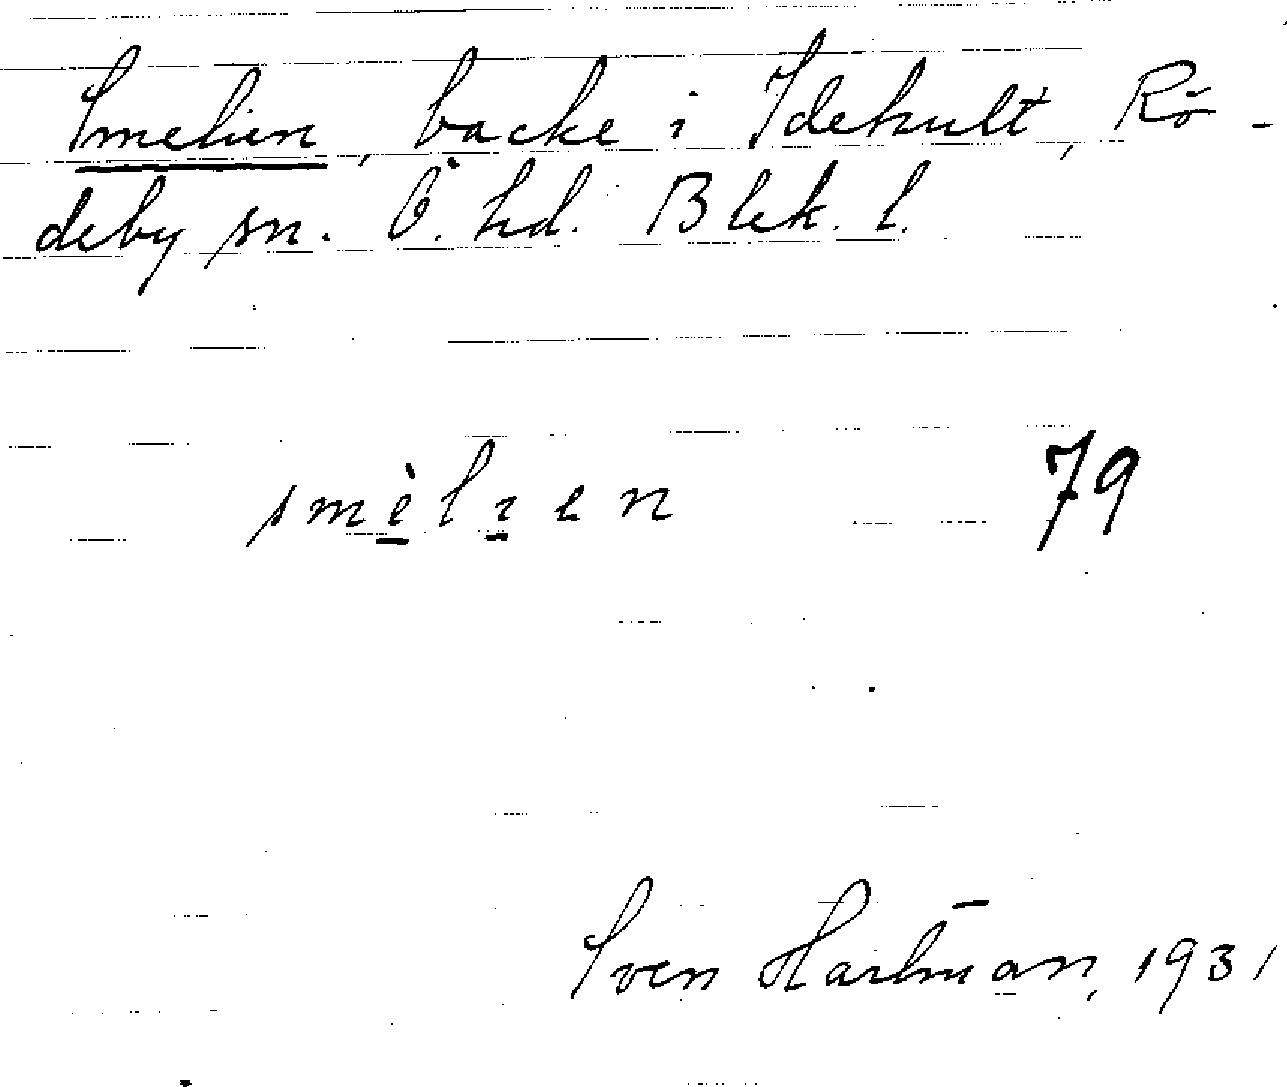 Smelien, backe i Idehult, Rö-
deby sn. Ö. hd. Blek. l.
smèlıen 79
Sven Hartman, 1931